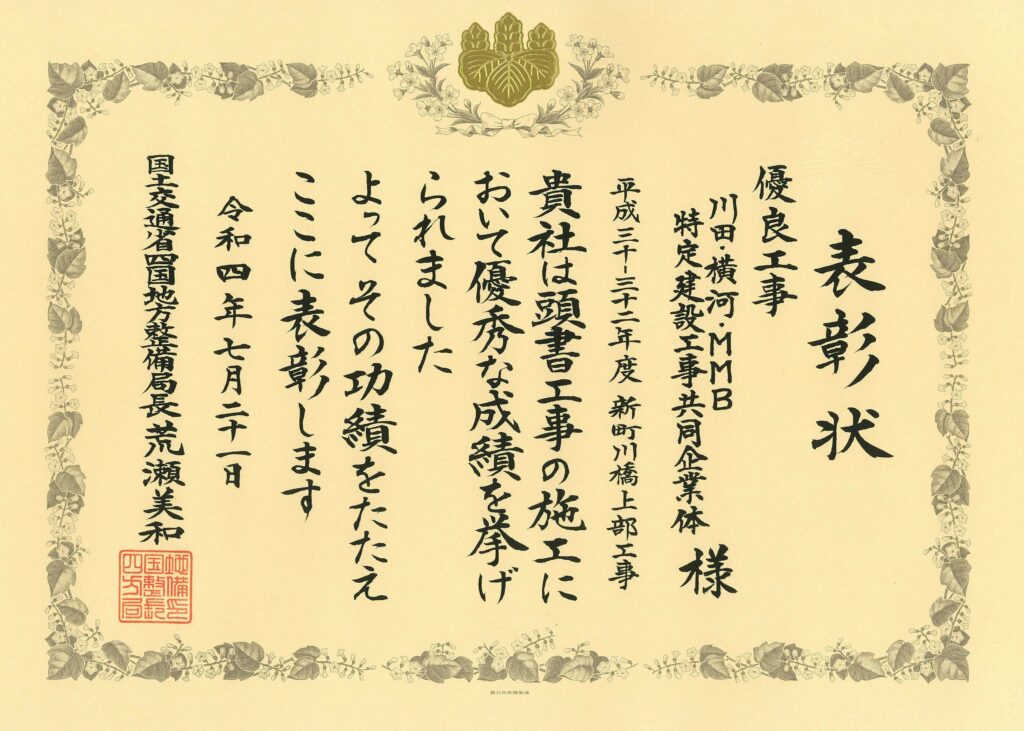 表彰状
優良工事
川田・横河・MMB
特定建設工事共同企業体 様
平成三十-三十二年度 新町川橋上部工事
貴社は頭書工事の施工に
おいて優秀な成績を挙げ
られました
よって その功績をたたえ
ここに表彰します
令和四年七月二十一日
国土交通省四国地方整備局長 荒瀬美和